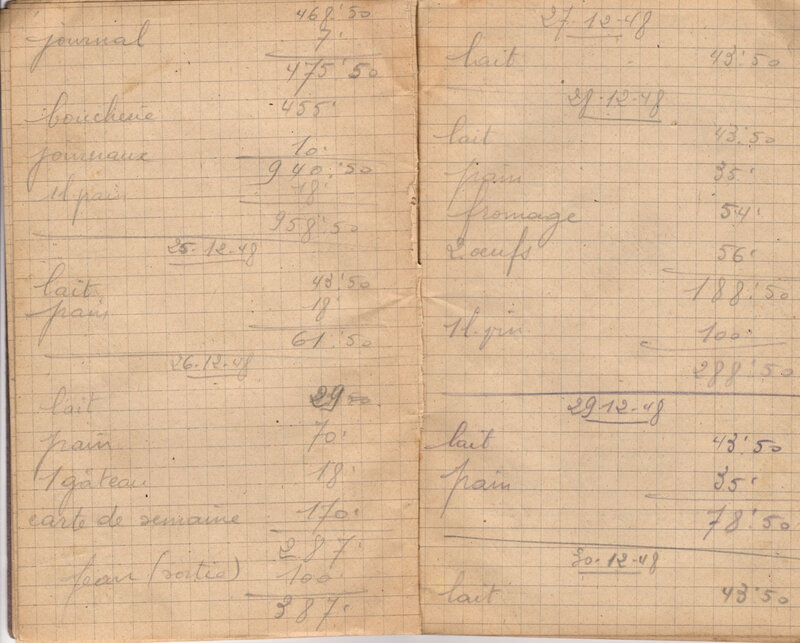 468.50
journal 7.
475.50
boucherie 455.
journaux 10.
940.50
1l pain 18.
958.50
25-12-48
lait 43.50
pain 18.
61.50
26-12-48
lait 29
pain 70.
1 gâteau 18.
carte de semaine 170.
287.
Jean (sortie) 100
387.
27-12-48
lait 43.50
28-12-48
lait 43.50
pain 35.
fromage 54.
2 œufs 56.
188.50
1l. 100.
288.50
29-12-48
lait 43.50
pain 35.
78.50
30-12-48
lait 43.50